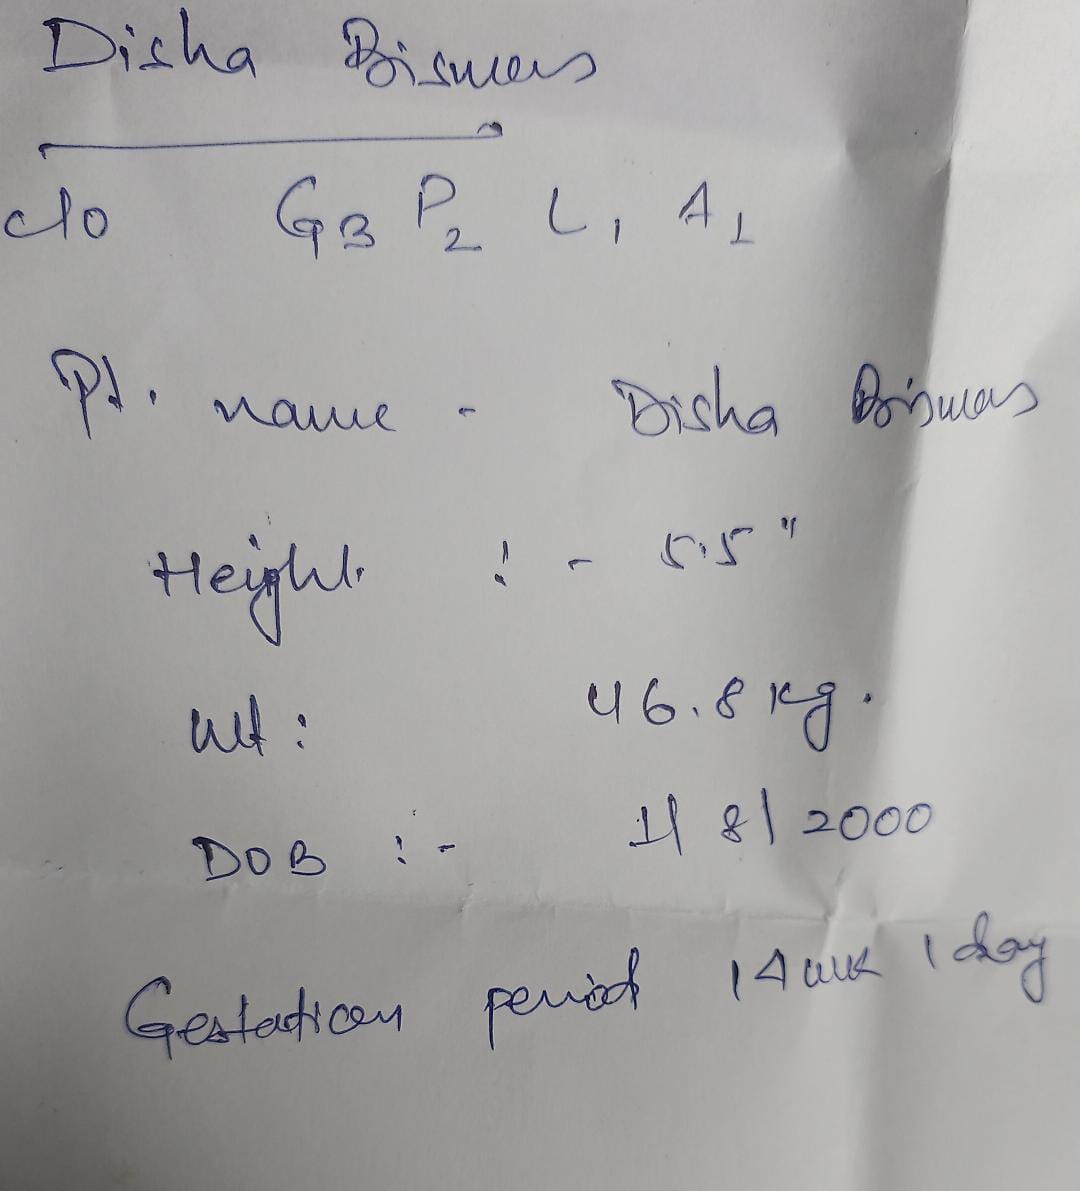 Disha Biswas
c/o G3 P2 L1 A1
Pt. name - Disha Biswas
Height :- 5.5"
Wt : 46.8 kg.
DOB :- 1/8/2000
Gestation period 14 wk 1 day